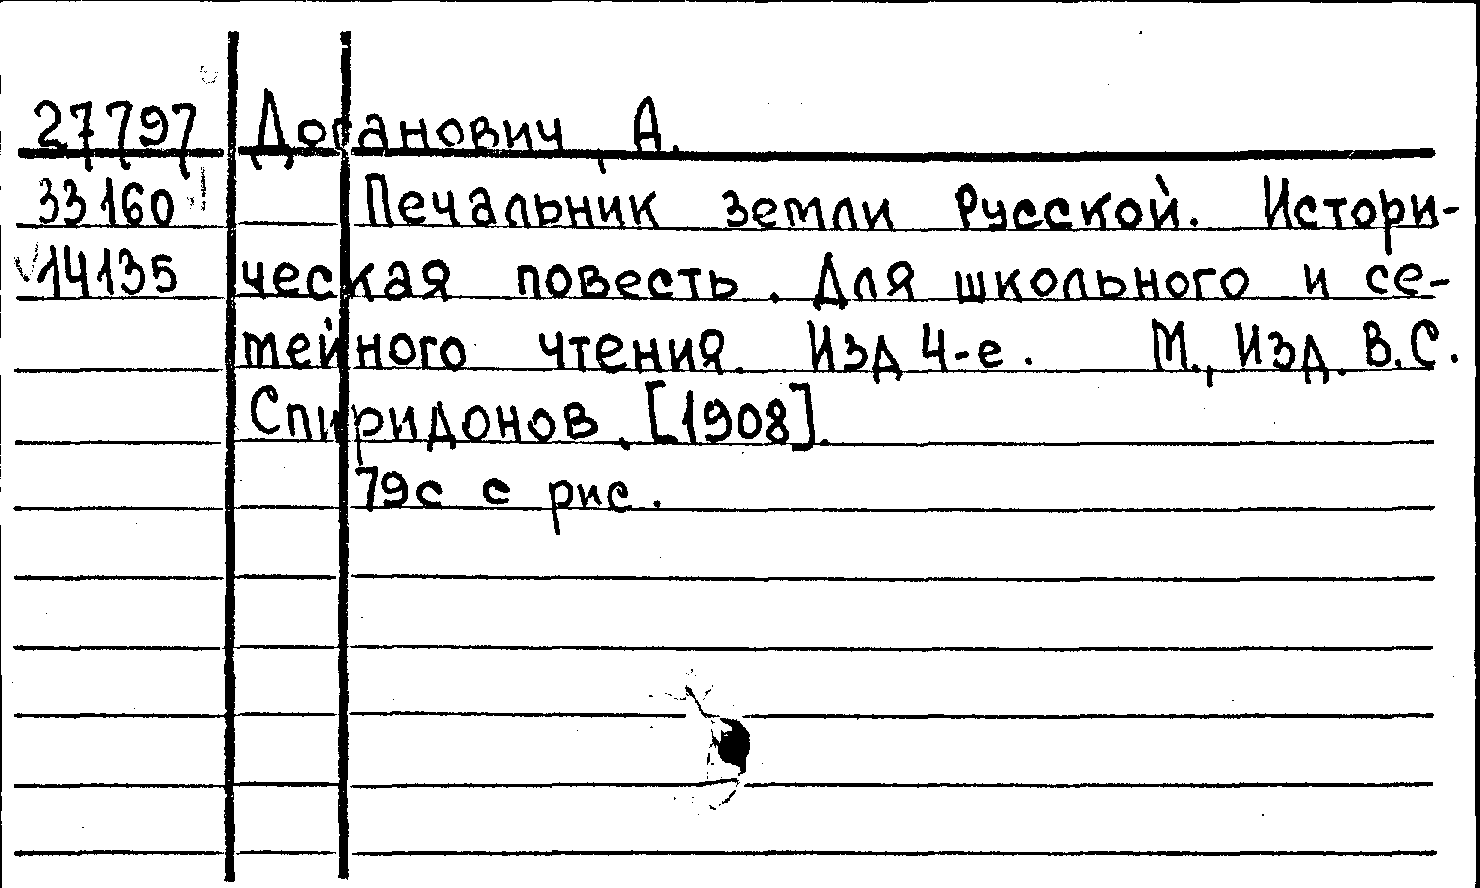 27797 Доганович, А.
33160 Печальник земли Русской. Истори-
14135 ческая повесть. Для школьного и се-
мейного чтения. Изд 4-е. М., Изд. В.С.
Спиридонов, [1908].
79с с рис.